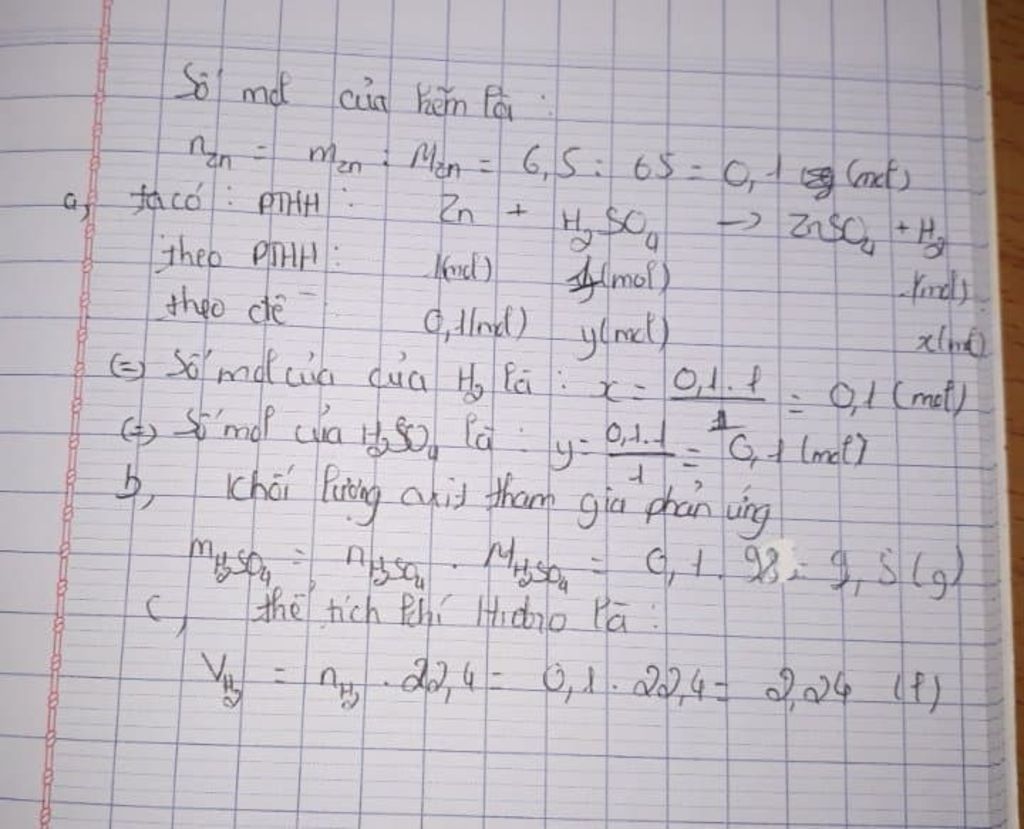 Số mol của kẽm là :
nZn = mZn : MZn = 6,5 : 65 = 0,1 (mol)
a, ta có : PTHH : Zn + H2SO4 → ZnSO4 + H2
theo PTHH : 1(mol) 1(mol) 1(mol)
theo đề 0,1(mol) y(mol) x(mol)
(=) Số mol của của H2 là : x = 0,1.1/1 = 0,1 (mol)
(=) Số mol của H2SO4 là : y = 0,1.1/1 = 0,1 (mol)
b, Khối lượng axit tham gia phản ứng
mH2SO4 = nH2SO4 . MH2SO4 = 0,1 . 98 = 9,8 (g)
c, thể tích khí Hidro là :
VH2 = nH2 . 22,4 = 0,1 . 22,4 = 2,24 (l)